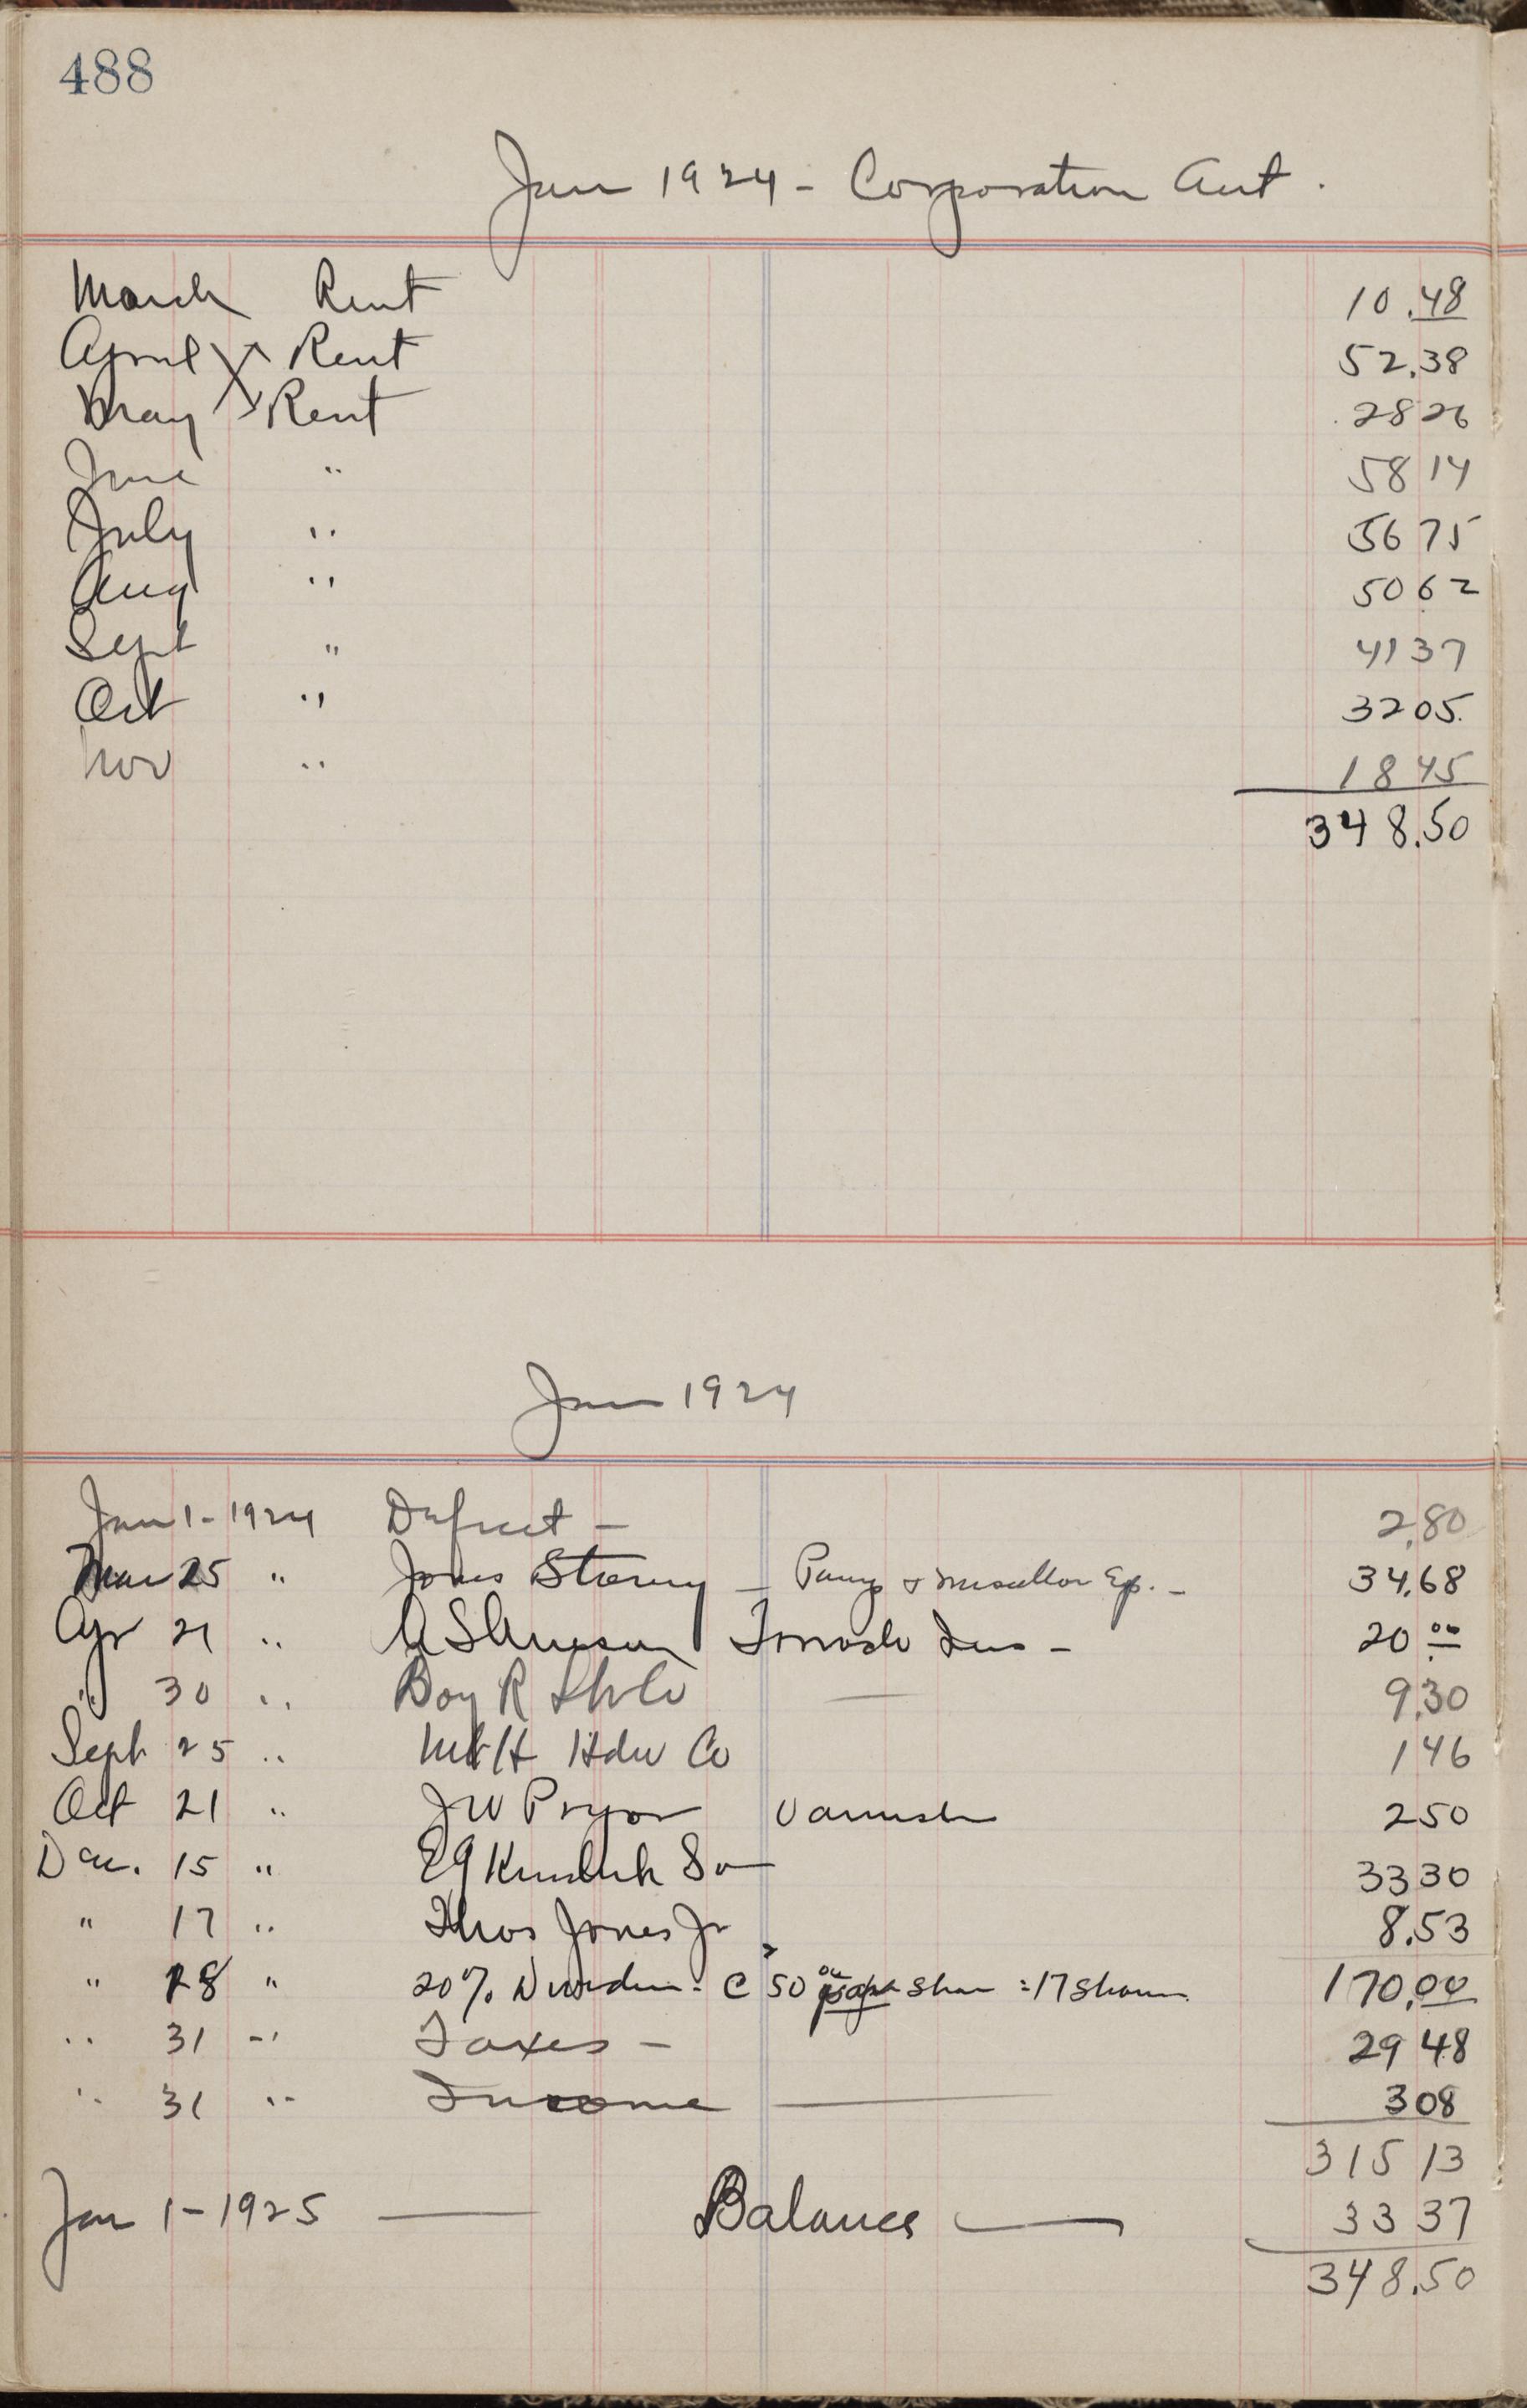 488
Jan 1924 - Corporation Acct.
March Rent 10.48
April Rent 52.38
May Rent 28 26
June " 58 14
July " 56 75
Aug " 50 62
Sept " 41 37
Oct " 32 05
Nov " 18 45
348.50
Jan 1924
Jan 1 - 1924 Deficit - 2.80
Mar 25 " Jones Storey - Pump & 34.68
Apr 21 " Tornado Ins - 20 00
" 30 " 9.30
Sept 25 " Mt H Hdw Co 1 46
Oct 21 " JW Pryor Varnish 2 50
Dec. 15 " 33 30
" 17 " Thos Jones Jr 8.53
" 28 " 20% 50 00 Share = 17 Shares 170.00
" 31 " Taxes - 29 48
" 31 " Income 3 08
315 13
Jan 1 - 1925 Balance 33 37
348.50